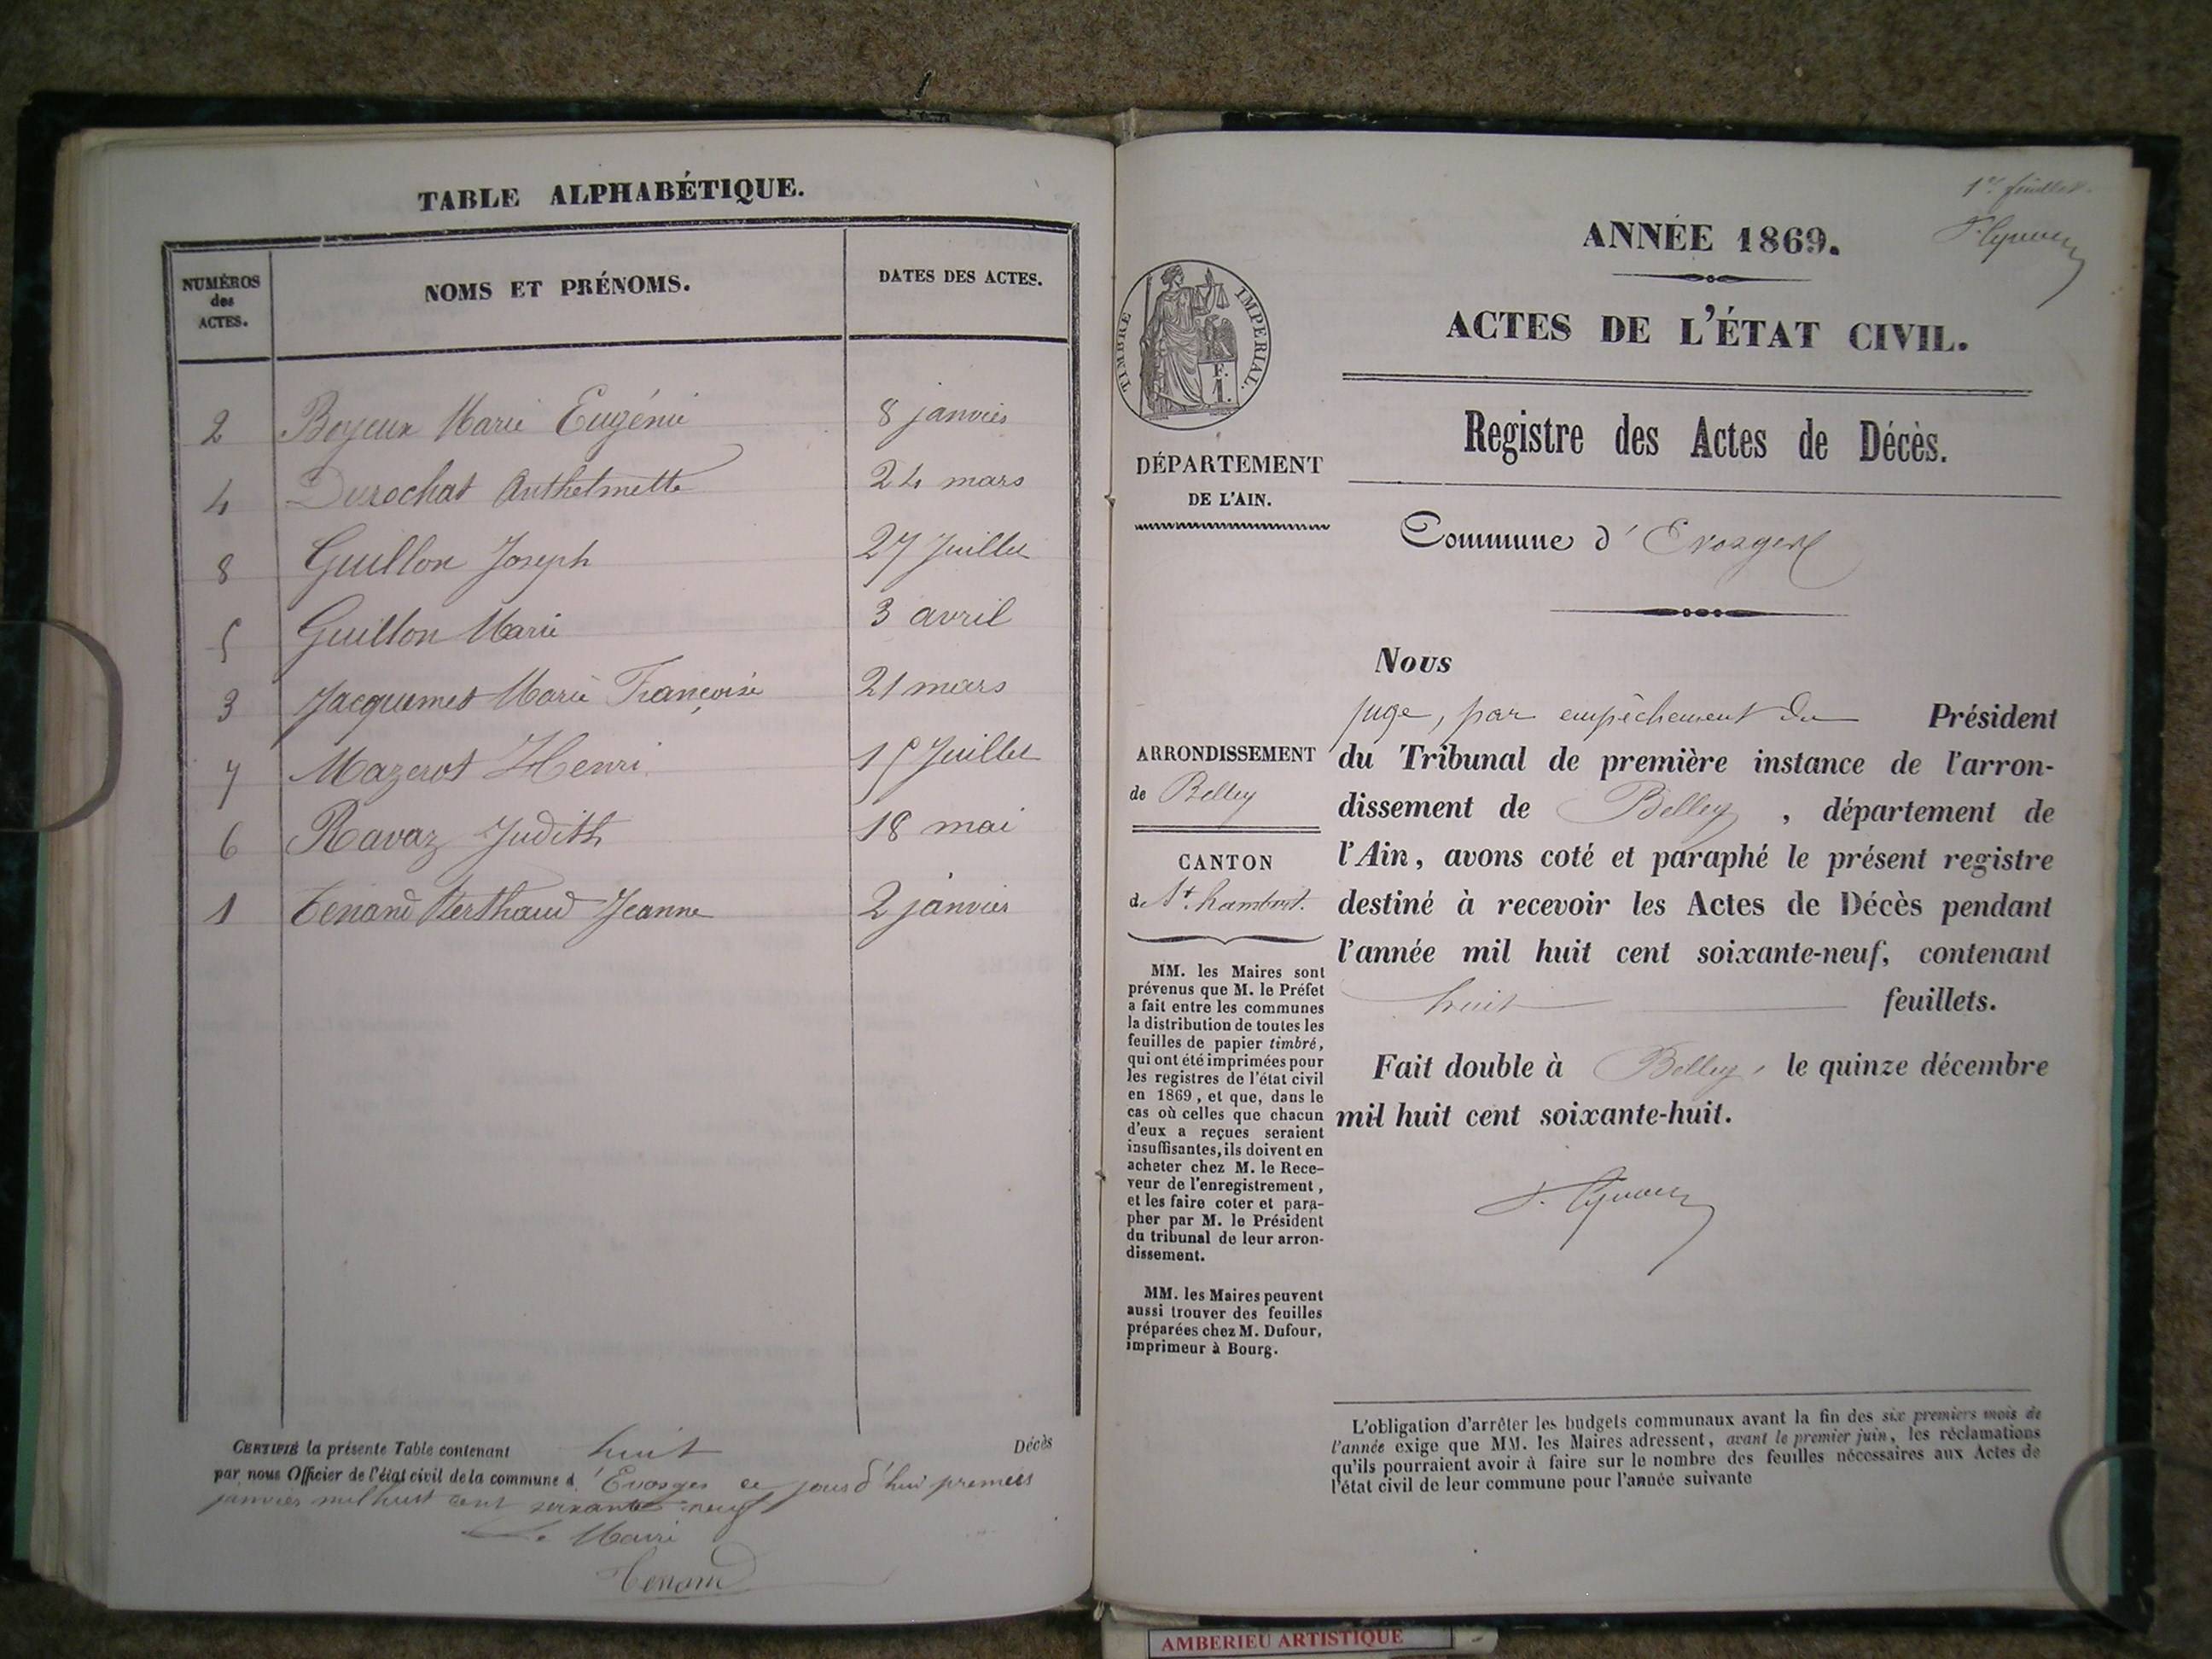 TABLE ALPHABÉTIQUE.
NUMÉROS des ACTES. NOMS ET PRÉNOMS. DATES DES ACTES.
2 Boyeux Marie Eugénie 8 janvier
4 Durochat Anthelmette 24 mars
8 Guillon Joseph 27 Juillet
5 Guillon Marie 3 avril
3 Jacquemet Marie Françoise 21 mars
7 Mazerot Henri 15 Juillet
6 Ravaz Judith 18 mai
1 Tenand Berthaud Jeanne 2 janvier
CERTIFIÉ la présente Table contenant huit Décès
par nous Officier de l'état civil de la commune d'Evosges ce jourd'hui premier
janvier mil huit cent soixante neuf
Le Maire
Tenand
1er feuillet.
ANNÉE 1869.
ACTES DE L'ÉTAT CIVIL.
Registre des Actes de Décès.
TIMBRE IMPERIAL.
F.
1.
DÉPARTEMENT
DE L'AIN.
Commune d'Evosges
ARRONDISSEMENT
de Belley
CANTON
de St. Rambert.
MM. les Maires sont
prévenus que M. le Préfet
a fait entre les communes
la distribution de toutes les
feuilles de papier timbré,
qui ont été imprimées pour
les registres de l'état civil
en 1869, et que, dans le
cas où celles que chacun
d'eux a reçues seraient
insuffisantes, ils doivent en
acheter chez M. le Rece-
veur de l'enregistrement,
et les faire coter et para-
pher par M. le Président
du tribunal de leur arron-
dissement.
MM. les Maires peuvent
aussi trouver des feuilles
préparées chez M. Dufour,
imprimeur à Bourg.
Nous
juge, par empêchement du Président
du Tribunal de première instance de l'arron-
dissement de Belley, département de
l'Ain, avons coté et paraphé le présent registre
destiné à recevoir les Actes de Décès pendant
l'année mil huit cent soixante-neuf, contenant
huit feuillets.
Fait double à Belley, le quinze décembre
mil huit cent soixante-huit.
L'obligation d'arrêter les budgets communaux avant la fin des six premiers mois de
l'année exige que MM. les Maires adressent, avant le premier juin, les réclamations
qu'ils pourraient avoir à faire sur le nombre des feuilles nécessaires aux Actes de
l'état civil de leur commune pour l'année suivante
AMBERIEU ARTISTIQUE